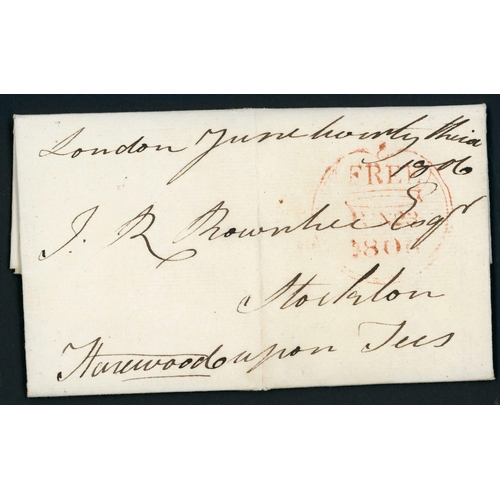 London June twenty third
1806
FREE
1806
J. R. Rowntree Esqr
Stockton
Harewood upon Tees